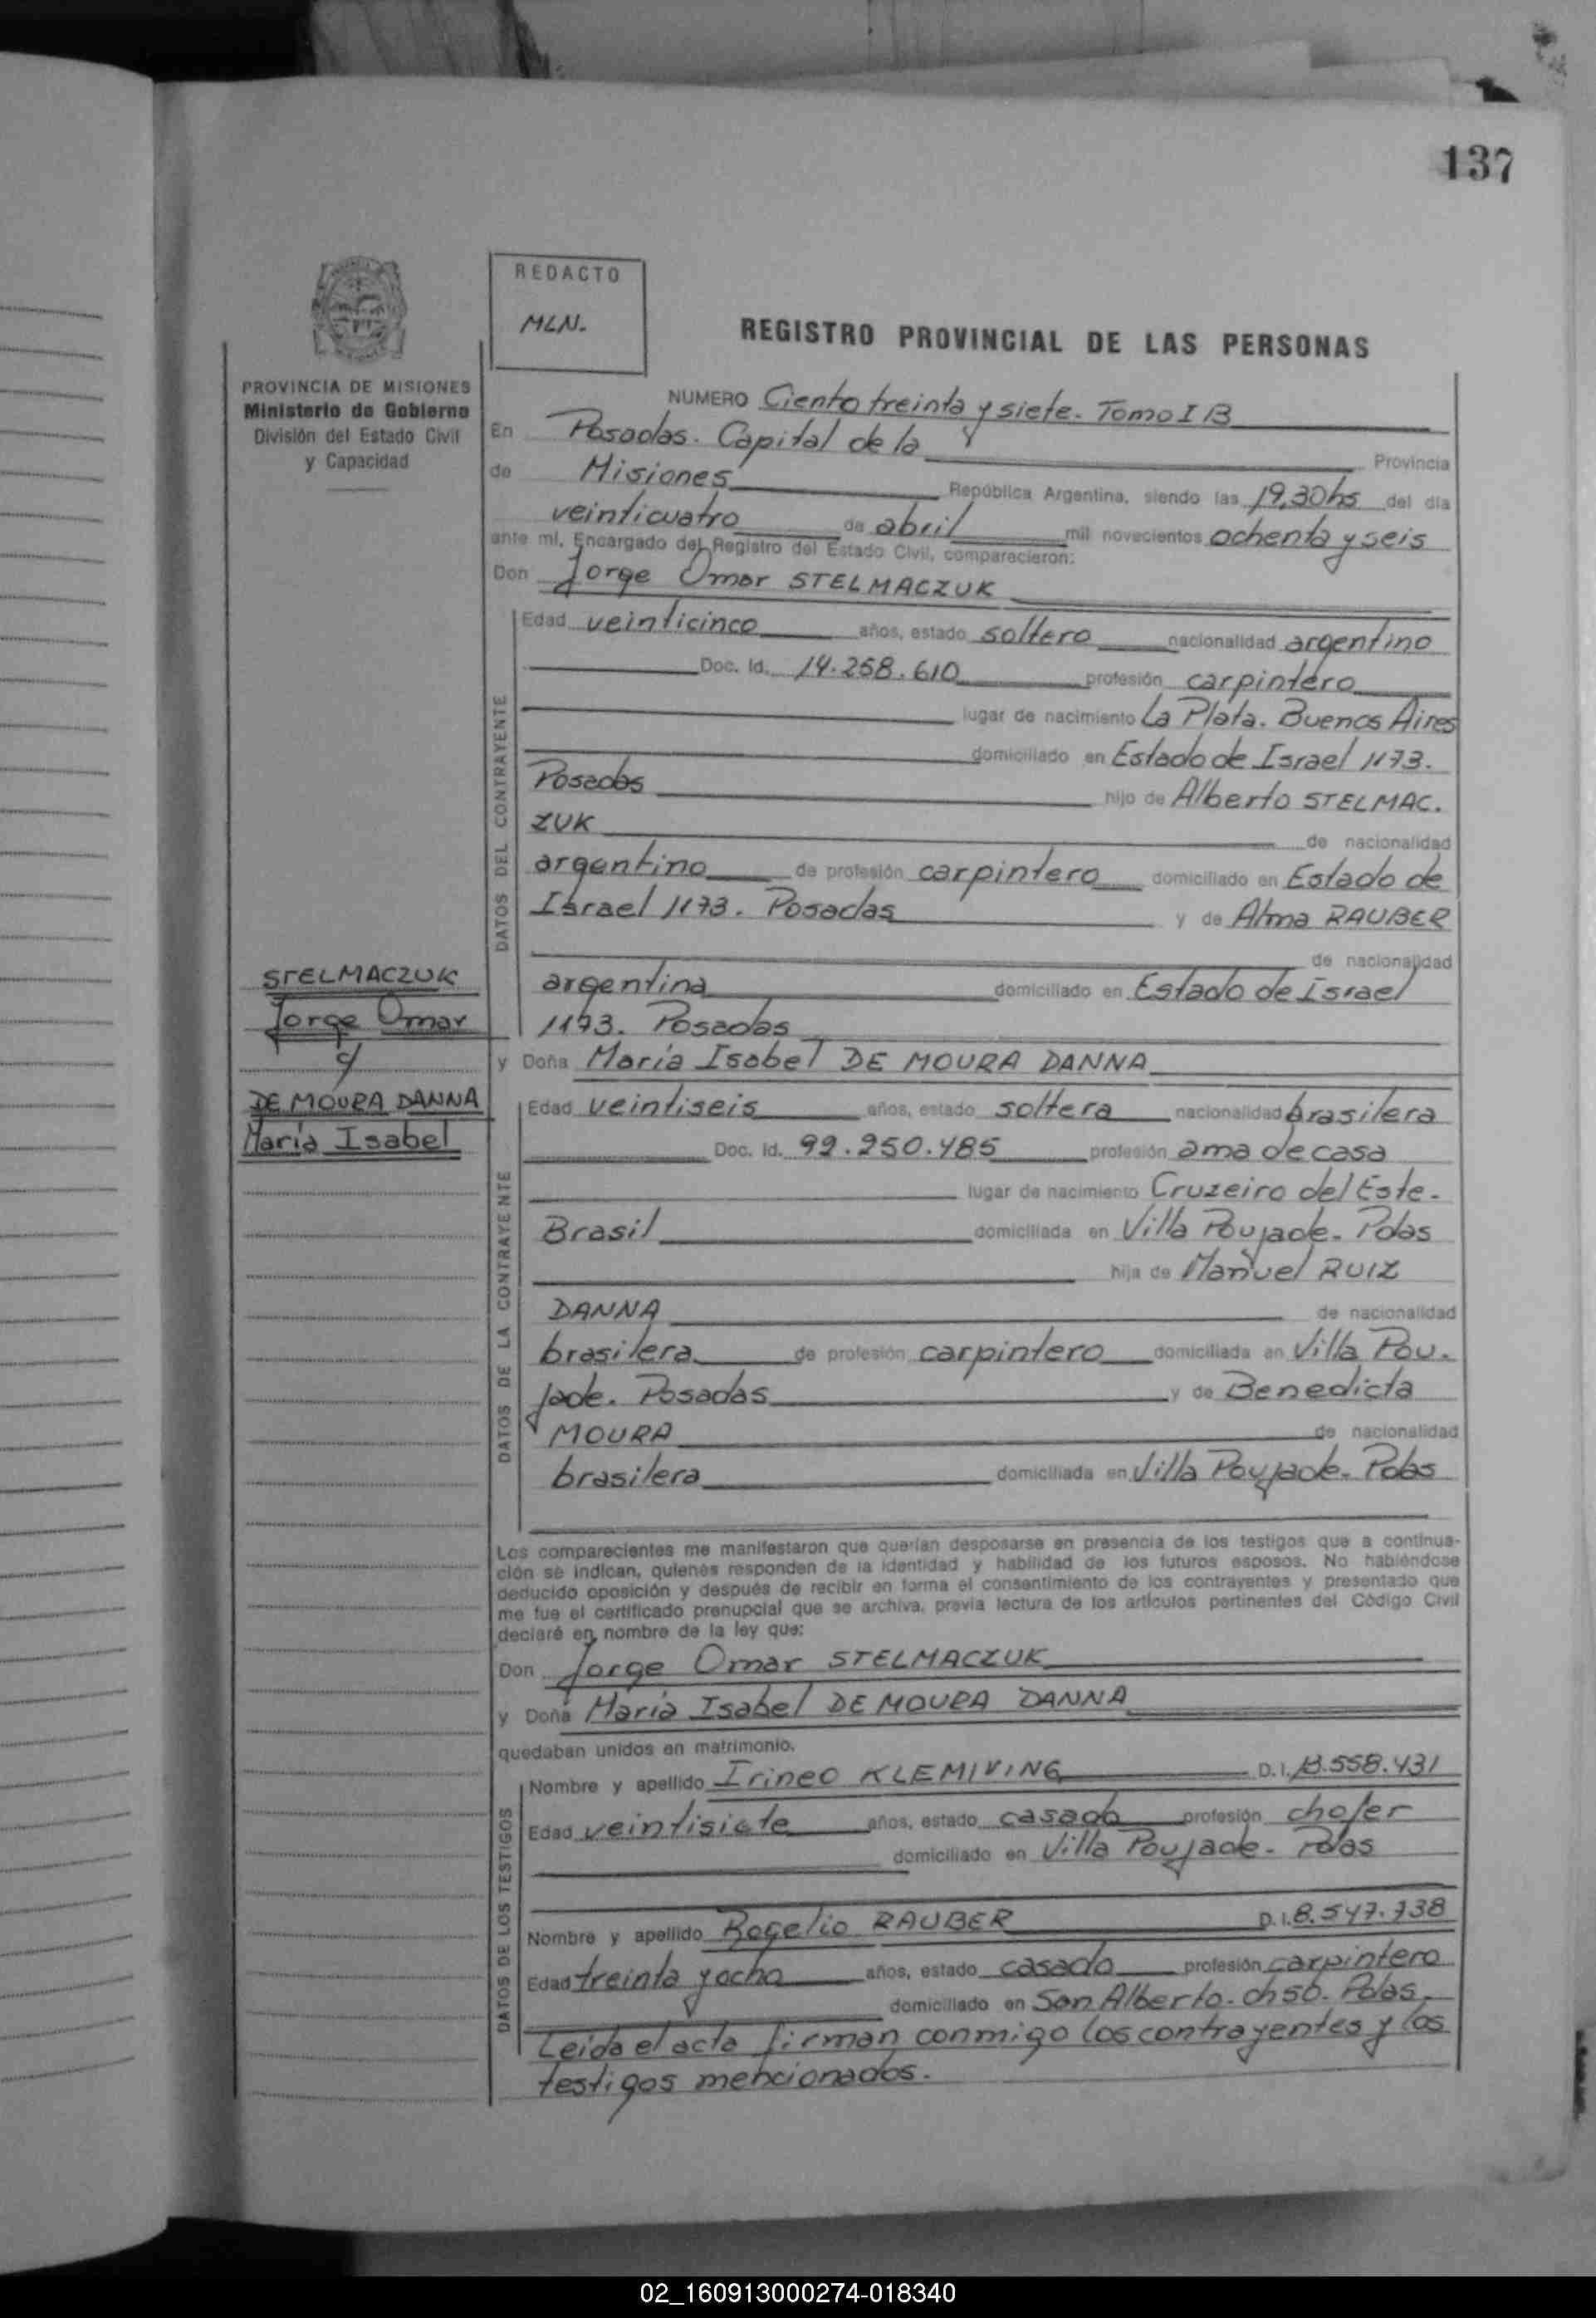 137
REDACTO
MLN.
REGISTRO PROVINCIAL DE LAS PERSONAS
PROVINCIA DE MISIONES
Ministerio de Gobierno
División del Estado Civil
y Capacidad
NUMERO Ciento treinta y siete. Tomo I B
En Posadas. Capital de la Provincia
de Misiones República Argentina, siendo las 19,30 hs del día
veinticuatro de abril mil novecientos ochenta y seis
ante mí, Encargado del Registro del Estado Civil, comparecieron:
Don Jorge Omar STELMACZUK
DATOS DEL CONTRAYENTE
Edad veinticinco años, estado soltero nacionalidad argentino
Doc. Id. 14.258.610 profesión carpintero
lugar de nacimiento La Plata. Buenos Aires
domiciliado en Estado de Israel 1173.
Posadas hijo de Alberto STELMAC.
ZUK de nacionalidad
argentino de profesión carpintero domiciliado en Estado de
Israel 1173. Posadas y de Alma RAUBER
de nacionalidad
argentina domiciliado en Estado de Israel
1173. Posadas
STELMACZUK
Jorge Omar
c/
DE MOURA DANNA
María Isabel
y Doña María Isabel DE MOURA DANNA
DATOS DE LA CONTRAYENTE
Edad veintiseis años, estado soltera nacionalidad brasilera
Doc. Id. 92.250.485 profesión ama de casa
lugar de nacimiento Cruzeiro del Este.
Brasil domiciliada en Villa Poujade. Pdas
hija de Manuel RUIZ
DANNA de nacionalidad
brasilera de profesión carpintero domiciliada en Villa Pou.
jade. Posadas y de Benedicta
MOURA de nacionalidad
brasilera domiciliada en Villa Poujade. Pdas
Los comparecientes me manifestaron que querían desposarse en presencia de los testigos que a continua-
ción se indican, quienes responden de la identidad y habilidad de los futuros esposos. No habiéndose
deducido oposición y después de recibir en forma el consentimiento de los contrayentes y presentado que
me fue el certificado prenupcial que se archiva, previa lectura de los artículos pertinentes del Código Civil
declaré en nombre de la ley que:
Don Jorge Omar STELMACZUK
y Doña María Isabel DE MOURA DANNA
quedaban unidos en matrimonio.
DATOS DE LOS TESTIGOS
Nombre y apellido Irineo KLEMIVING D.I. 13.558.431
Edad veintisiete años, estado casado profesión chofer
domiciliado en Villa Poujade. Pdas
Nombre y apellido Rogelio RAUBER D.I. 8.547.738
Edad treinta y ocho años, estado casado profesión carpintero
domiciliado en San Alberto. ch 50. Pdas.
Leída el acta firman conmigo los contrayentes y los
testigos mencionados.
02_160913000274-018340